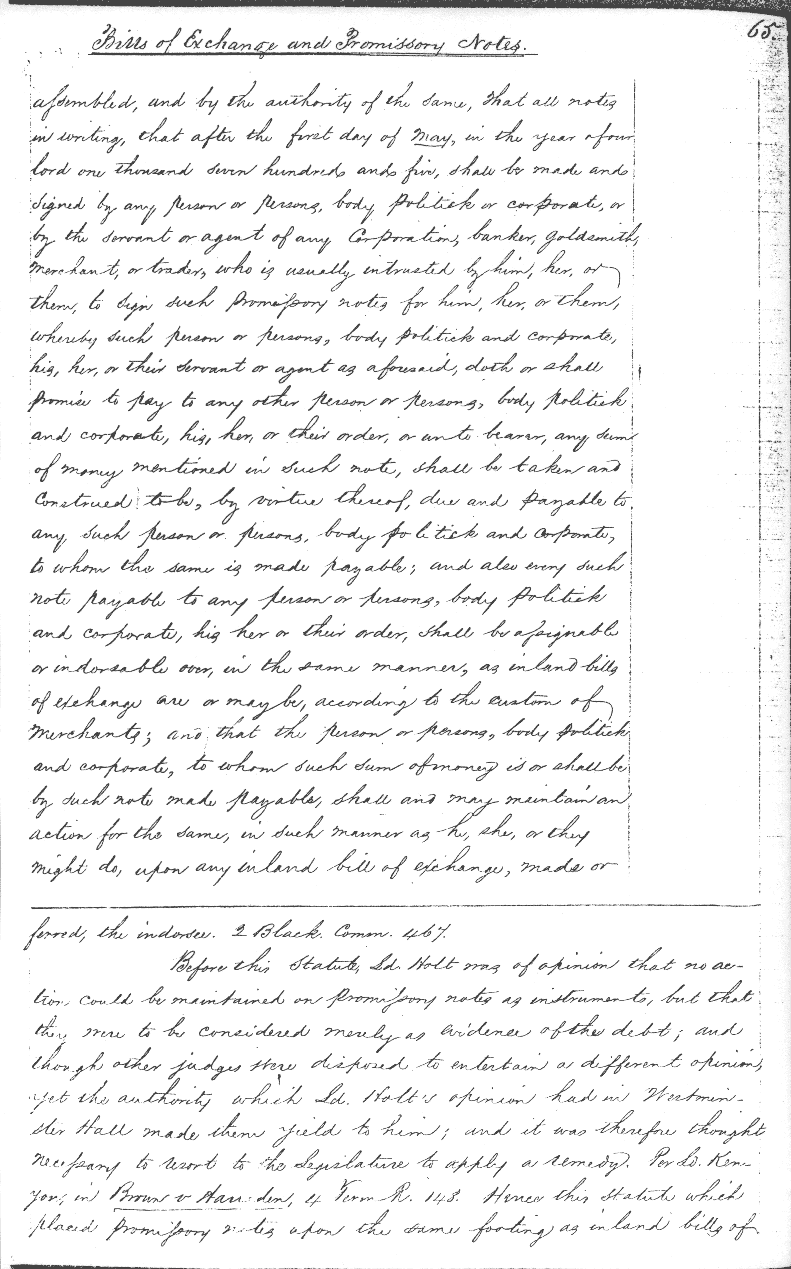 65.
Bills of Exchange and Promissory Notes.
assembled, and by the authority of the same, That all notes
in writing, that after the first day of May, in the year of our
lord one thousand seven hundred and five, shall be made and
signed by any person or persons, body politick or corporate, or
by the servant or agent of any Corporation, banker, goldsmith,
merchant, or trader, who is usually intrusted by him, her, or
them, to sign such promissory notes for him, her, or them,
whereby such person or persons, body politick and corporate,
his, her, or their servant or agent as aforesaid, doth or shall
promise to pay to any other person or persons, body politick
and corporate, his, her, or their order, or unto bearer, any sum
of money mentioned in such note, shall be taken and
construed to be, by virtue thereof, due and payable to
any such person or persons, body politick and corporate,
to whom the same is made payable; and also every such
note payable to any person or persons, body politick
and corporate, his her or their order, shall be assignable
or indorsable over, in the same manner, as inland bills
of exchange are or may be, according to the custom of
merchants; and that the person or persons, body politick
and corporate, to whom such sum of money is or shall be
by such note made payable, shall and may maintain an
action for the same, in such manner as he, she, or they
might do, upon any inland bill of exchange, made or
ferred, the indorsee. 2 Black. Comm. 467.
Before this Statute, Ld. Holt was of opinion that no ac-
tion could be maintained on promissory notes as instruments, but that
they were to be considered merely as evidence of the debt; and
though other judges were disposed to entertain a different opinion,
yet the authority which Ld. Holt's opinion had in Westmin-
ster Hall made them yield to him; and it was therefore thought
necessary to resort to the legislature to apply a remedy. Per Ld. Ken-
yon, in Brown v Harraden, 4 Term R. 148. Hence this statute which
placed promissory notes upon the same footing as inland bills of